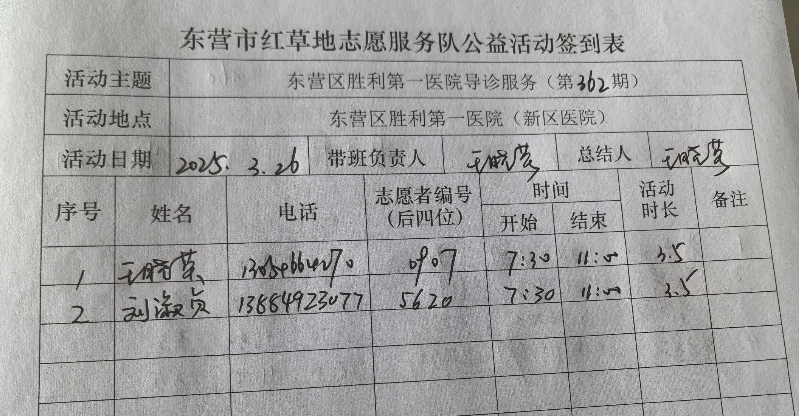 东营市红草地志愿服务队公益活动签到表
活动主题 东营区胜利第一医院导诊服务（第362期）
活动地点 东营区胜利第一医院（新区医院）
活动日期 2025.3.26 带班负责人 王晓营 总结人 王晓营
序号 姓名 电话 志愿者编号（后四位） 时间 开始 结束 活动时长 备注
1 王晓营 0907 7:30 11:00 3.5
2 刘淑贞 13884923077 5620 7:30 11:00 3.5